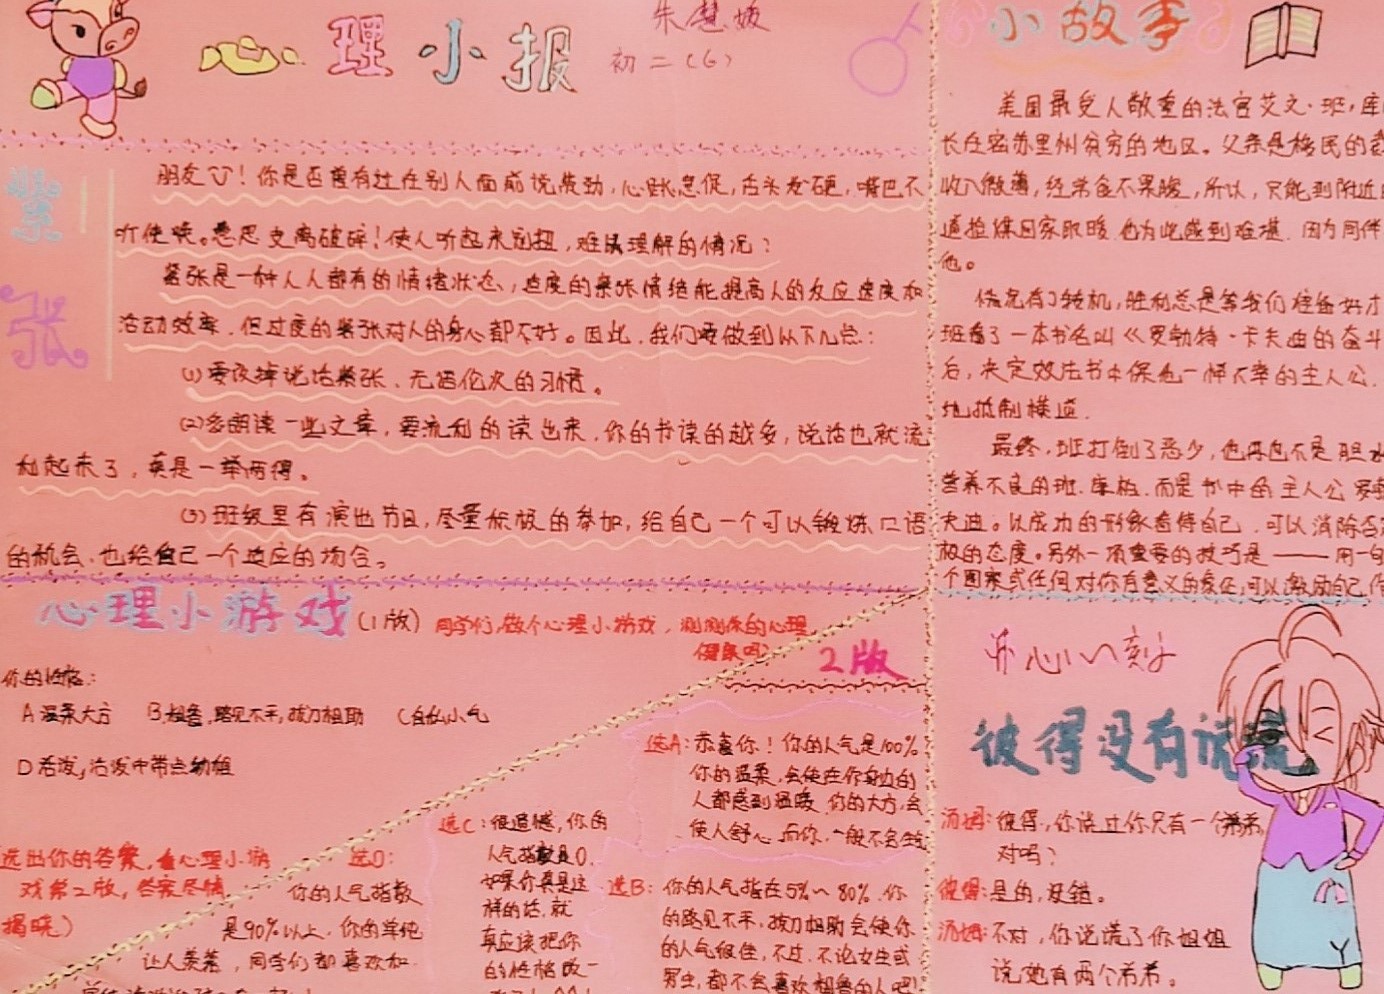 心理小报
朱慧媛
初二(6)
紧张
朋友！你是否曾有过在别人面前说发动，心跳急促，舌头发硬，嘴巴不
听使唤。意思支离破碎！使人听起来别扭，难以理解的情况？
紧张是一种人人都有的情绪状态，适度的紧张情绪能提高人的反应速度和
活动效率，但过度的紧张对人的身心都不好。因此，我们要做到以下几点：
(1)要改掉说话紧张、无语伦次的习惯。
(2)多朗读一些文章，要流利的读出来，你的书读的越多，说话也就流
利起来了，真是一举两得。
(3)班级里有演出节目，尽量积极的参加，给自己一个可以锻炼口语
的机会，也给自己一个适应的场合。
心理小游戏(1版) 同学们，做个心理小游戏，测测你的心理
健康吗?
你的性格：
A 温柔大方 B.粗鲁，路见不平，拔刀相助 C自私小气
D 活泼，活泼中带点幼粗
选出你的答案，看心理小游
戏第2版，答案尽情
揭晓)
2版
选A：恭喜你！你的人气是100%
你的温柔，会使在你身边的
人都感到温暖，你的大方，会
使人舒心，而你，一般不会生
选B：你的人气指在5%～80%，你
的路见不平，拔刀相助会使你
的人气很佳，不过，不论女生或
男生，都不会喜欢粗鲁的人吧!
选C：很遗憾，你的
人气指数是0，
如果你真是这
样的话，就
真应该把你
的性格改一
选D：
你的人气指数
是90%以上，你的单纯
让人羡慕，同学们都喜欢和
小故事
美国最受人敬重的法官艾文·班，库
长在密苏里州贫穷的地区。父亲是移民的
收入微薄，经常食不果腹，所以，只能到附近
道捡煤回家取暖，他为此感到难堪，因为同伴
他。
情况有了转机，胜利总是等我们准备好才
班看了一本书名叫《罗勃特·卡夫迪的奋斗
后，决定效法书中保他一样不幸的主人公，
地抵制横逆.
最终，班打倒了恶少，他再也不是胆
营养不良的班.库柏，而是书中的主人公罗勃
夫迪。以成功的形象看待自己，可以消除否
极的态度。另外一项重要的技巧是——用一句
个图案或任何对你有意义的象征，可以激励自己
开心一刻
彼得没有说谎
汤姆：彼得，你说过你只有一个弟弟，
对吗？
彼得：是的，没错。
汤姆：不对，你说谎了你姐姐
说她有两个弟弟。